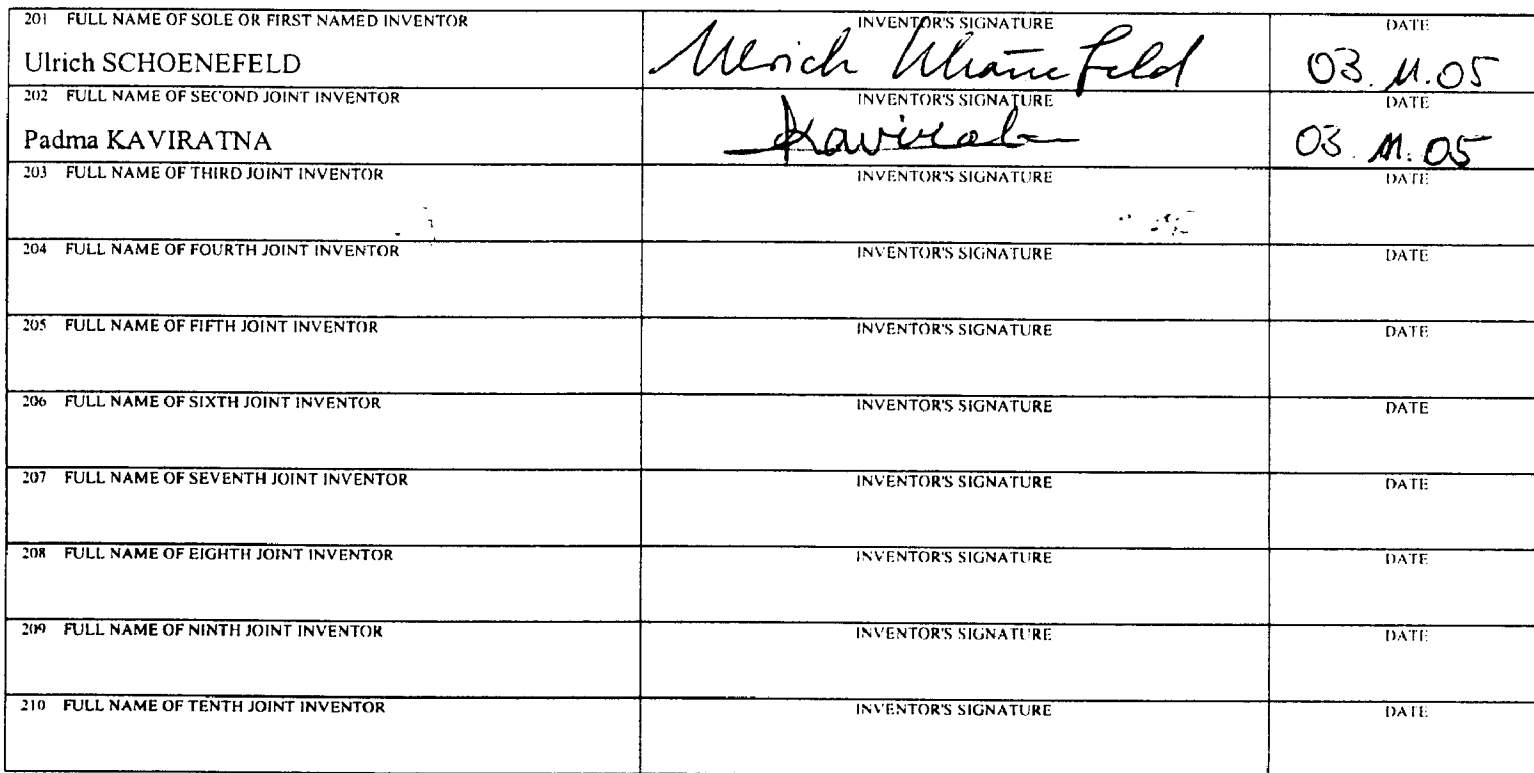 201 FULL NAME OF SOLE OR FIRST NAMED INVENTOR INVENTOR'S SIGNATURE DATE
Ulrich SCHOENEFELD Ulrich Schoenefeld 03.11.05
202 FULL NAME OF SECOND JOINT INVENTOR INVENTOR'S SIGNATURE DATE
Padma KAVIRATNA 03.11.05
203 FULL NAME OF THIRD JOINT INVENTOR INVENTOR'S SIGNATURE DATE
204 FULL NAME OF FOURTH JOINT INVENTOR INVENTOR'S SIGNATURE DATE
205 FULL NAME OF FIFTH JOINT INVENTOR INVENTOR'S SIGNATURE DATE
206 FULL NAME OF SIXTH JOINT INVENTOR INVENTOR'S SIGNATURE DATE
207 FULL NAME OF SEVENTH JOINT INVENTOR INVENTOR'S SIGNATURE DATE
208 FULL NAME OF EIGHTH JOINT INVENTOR INVENTOR'S SIGNATURE DATE
209 FULL NAME OF NINTH JOINT INVENTOR INVENTOR'S SIGNATURE DATE
210 FULL NAME OF TENTH JOINT INVENTOR INVENTOR'S SIGNATURE DATE